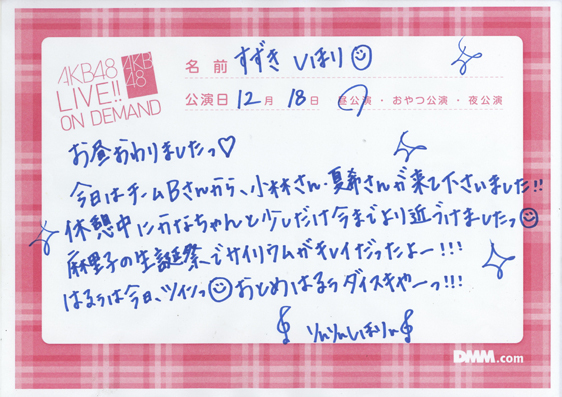 AKB48
LIVE!!
ON DEMAND
AKB
48
名前 すずき しほり
公演日 12月 18日 昼公演・おやつ公演・夜公演
お昼おわりましたっ♡
今日はチームBさんから、小林さん・夏希さんが来て下さいました!!
休憩中にかなちゃんと少しだけ今までより近づけましたっ
麻里子の生誕祭でサイリウムがキレイだったよー!!!
はるぅは今日、ツインっ おとめはるぅダイスキやーっ!!!
りんりんしほりん
DMM.com